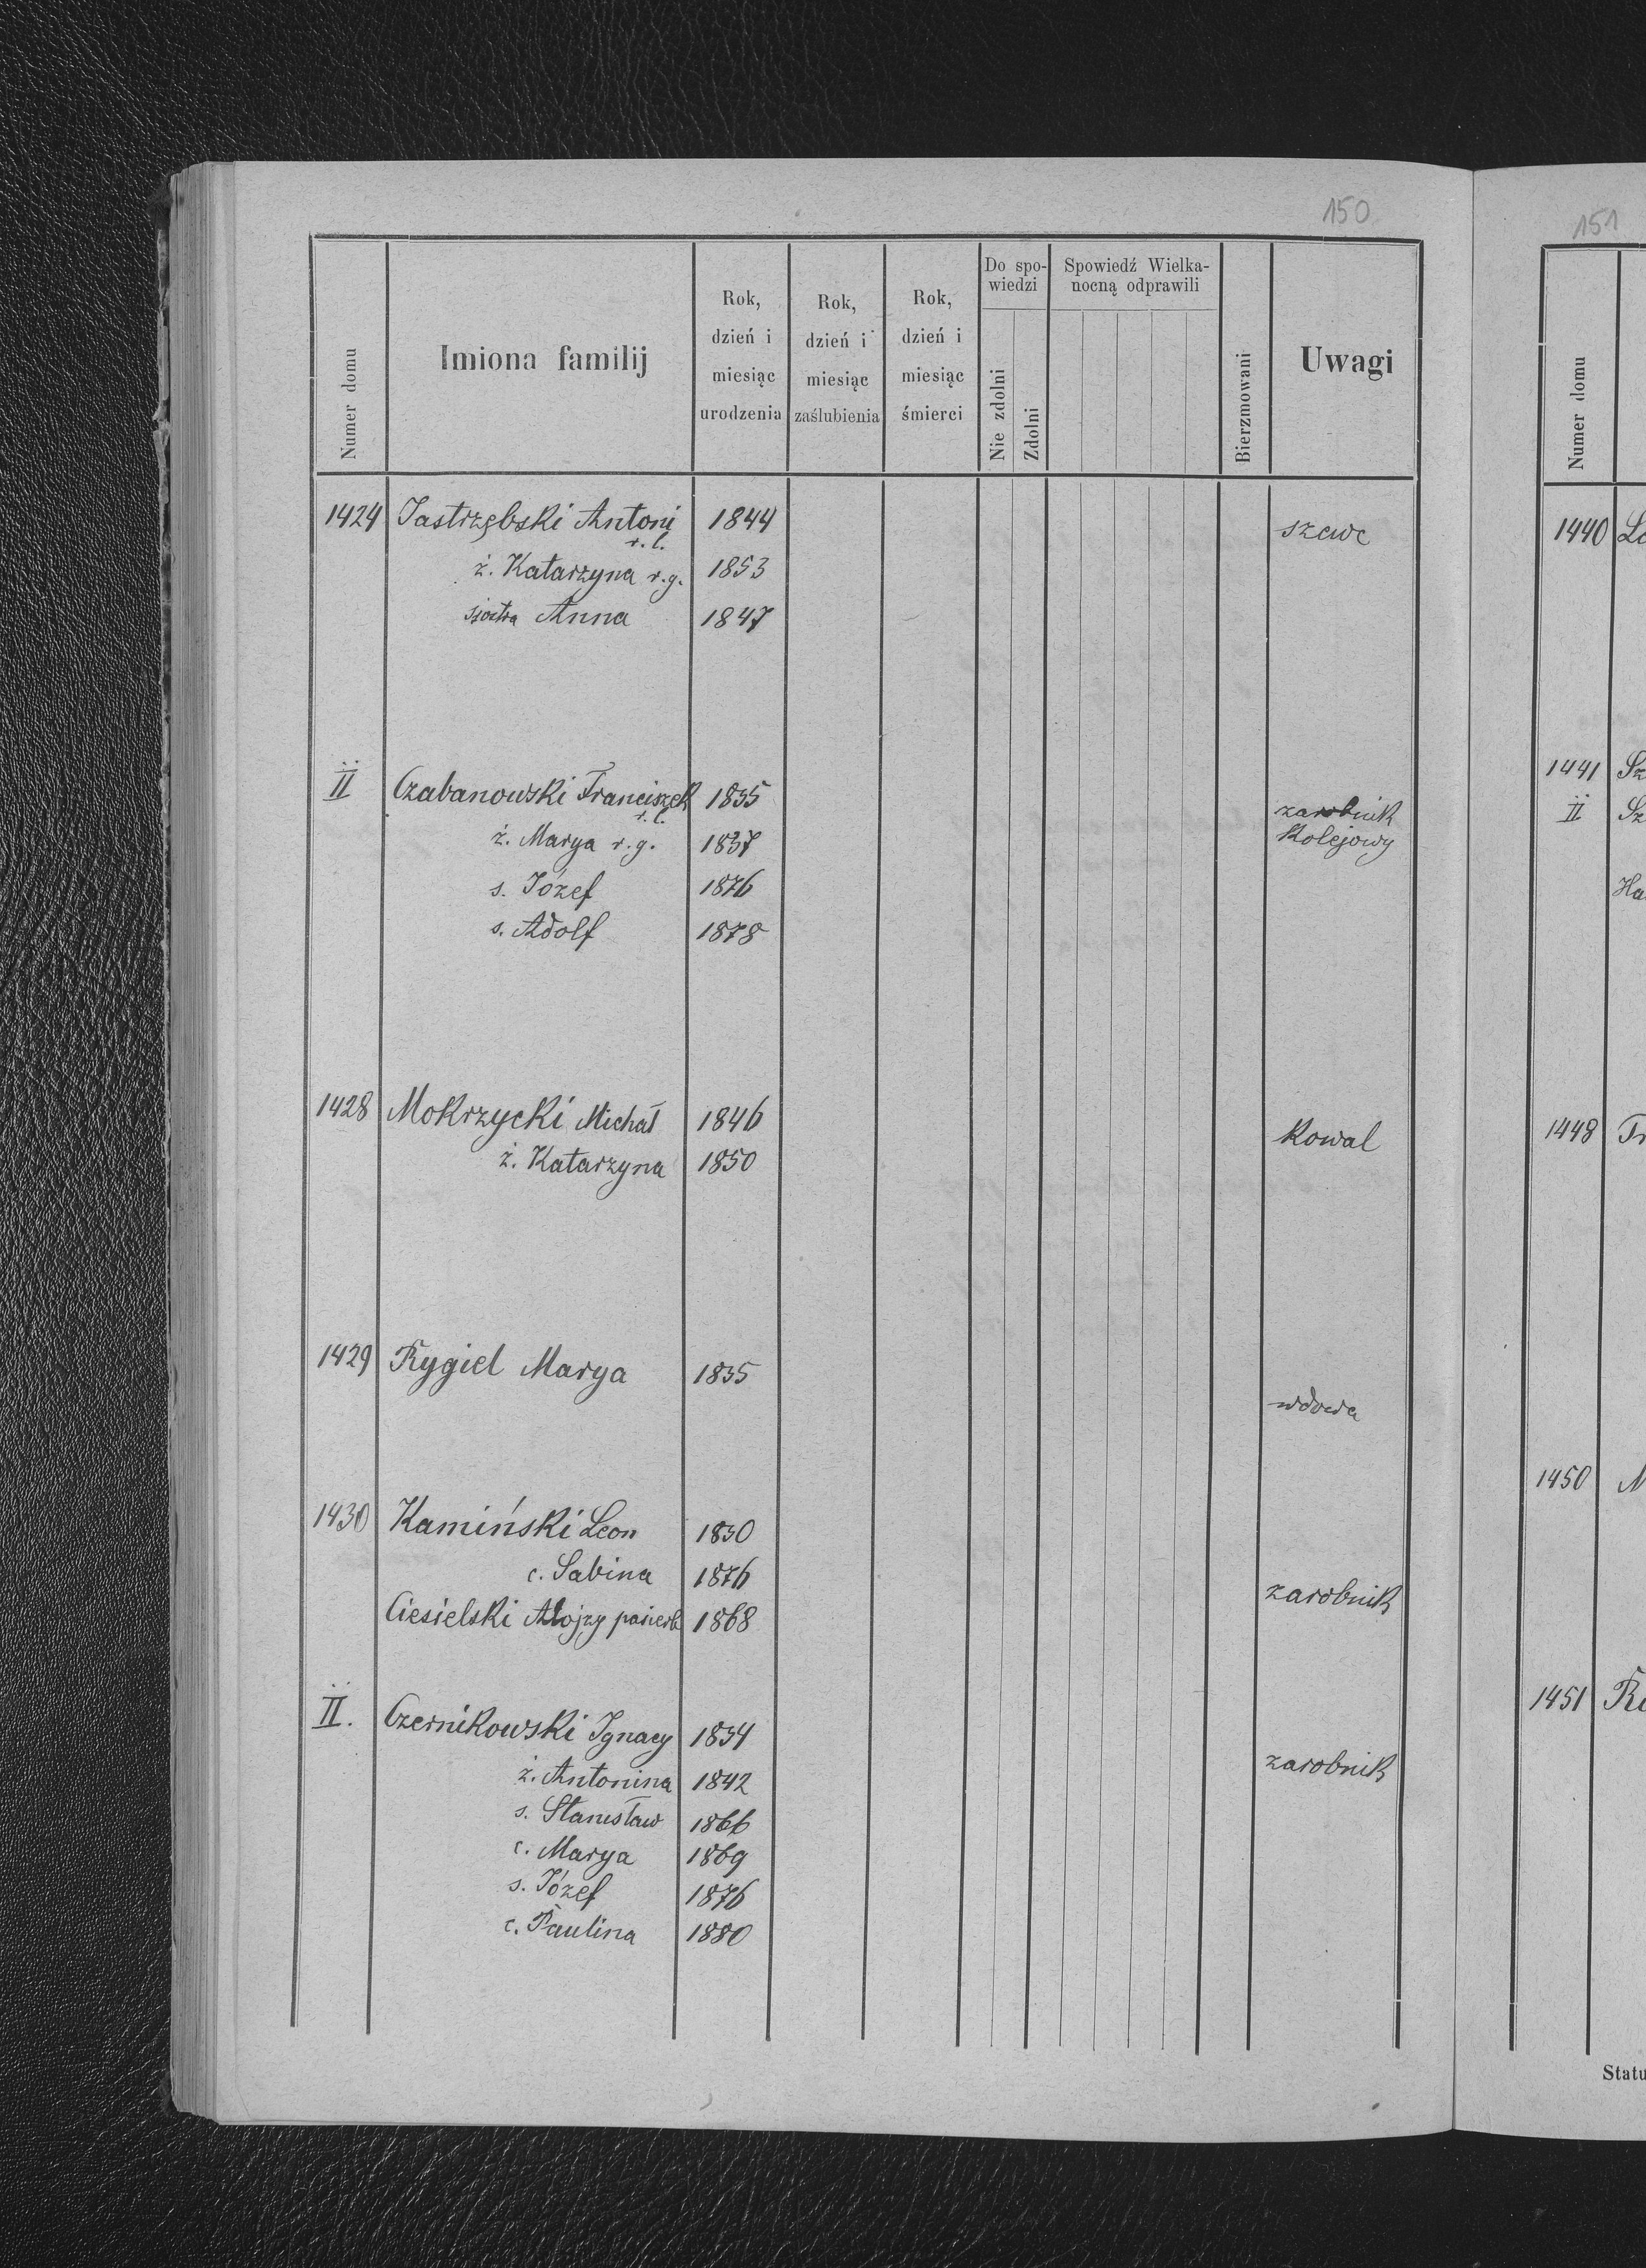 150
151
Numer domu
Imiona familij
Rok, dzień i miesiąc urodzenia
Rok, dzień i miesiąc zaślubienia
Rok, dzień i miesiąc śmierci
Do spo-
wiedzi
Nie zdolni
Zdolni
Spowiedź Wielka-
nocną odprawili
Bierzmowani
Uwagi
1424 Jastrzębski Antoni 1844 szewc
r.l.
ż. Katarzyna r.g. 1853
siostra Anna 1847
II Czabanowski Franciszek 1835 zarobnik
r.l.
ż. Marya r.g. 1837 kolejowy
s. Józef 1876
s. Adolf 1878
1428 Mokrzycki Michał 1846 kowal
ż. Katarzyna 1850
1429 Rygiel Marya 1835
wdowa
1430 Kamiński Leon 1830
c. Sabina 1876 zarobnik
Ciesielski Alojzy pasierb 1868
II. Czernikowski Ignacy 1834
ż. Antonina 1842 zarobnik
s. Stanisław 1866
c. Marya 1869
s. Józef 1876
c. Paulina 1880
Numer domu
1440
1441 Sz
II Sz
Ha
1448
1450 M
1451
Statu